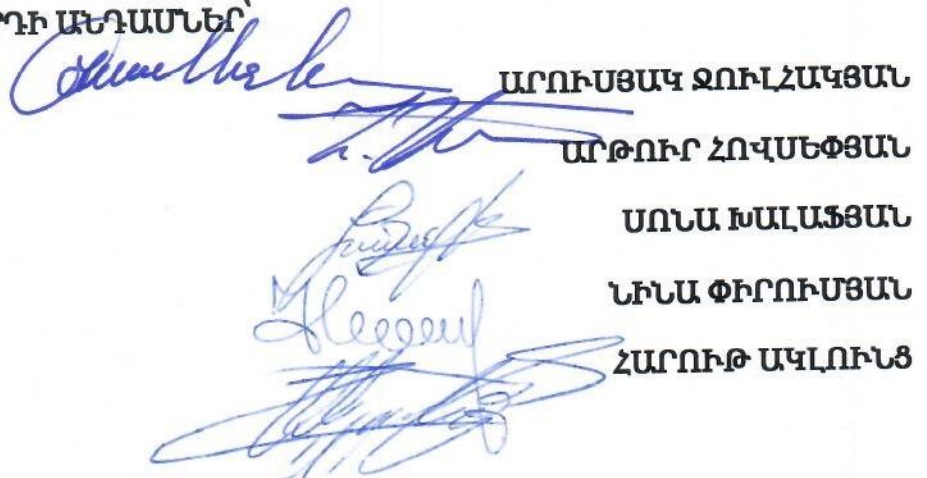 ՐԴԻ ԱՆԴԱՄՆԵՐ՝
ԱՐՈՒՍՅԱԿ ՋՈՒԼՀԱԿՅԱՆ
ԱՐԹՈՒՐ ՀՈՎՍԵՓՅԱՆ
ՍՈՆԱ ԽԱԼԱՖՅԱՆ
ՆԻՆԱ ՓԻՐՈՒՄՅԱՆ
ՀԱՐՈՒԹ ԱԿԼՈՒՆՑ